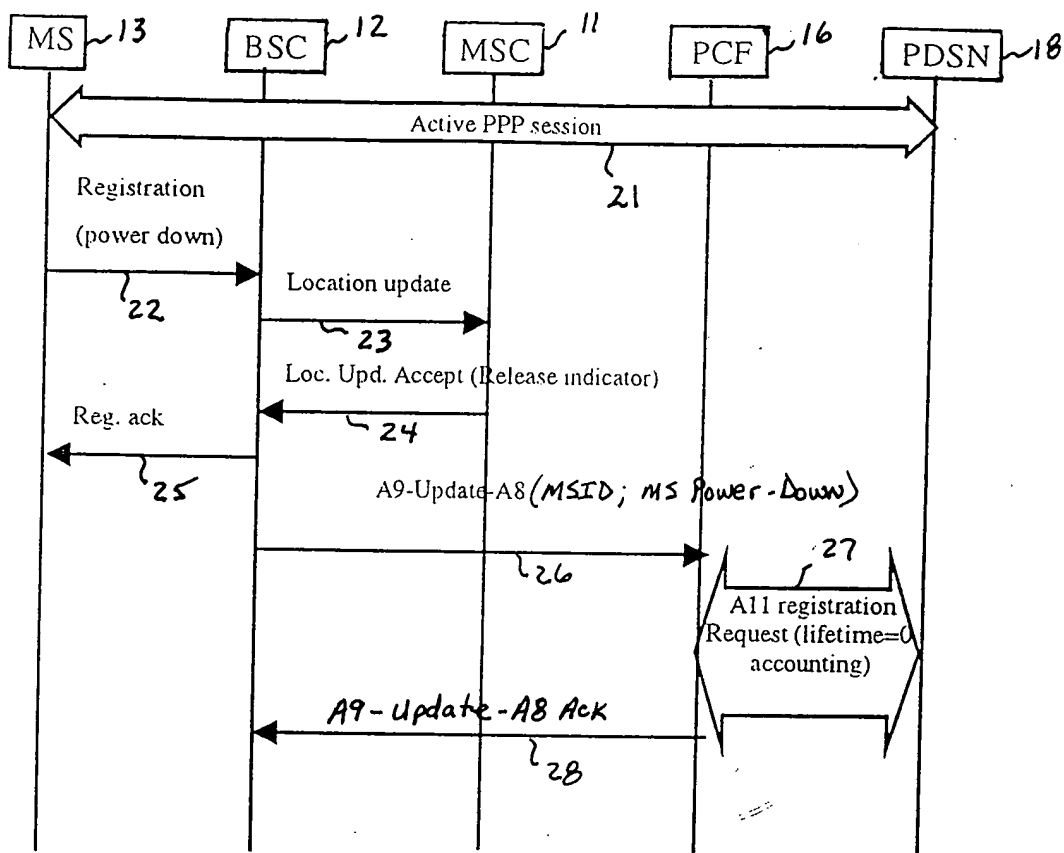 MS 13
BSC 12
MSC 11
PCF 16
PDSN 18
Active PPP session
21
Registration
(power down)
22
Location update
23
Loc. Upd. Accept (Release indicator)
24
Reg. ack
25
A9-Update-A8 (MSID; MS Power-Down)
26
27
A11 registration
Request (lifetime=0
accounting)
A9-Update-A8 Ack
28